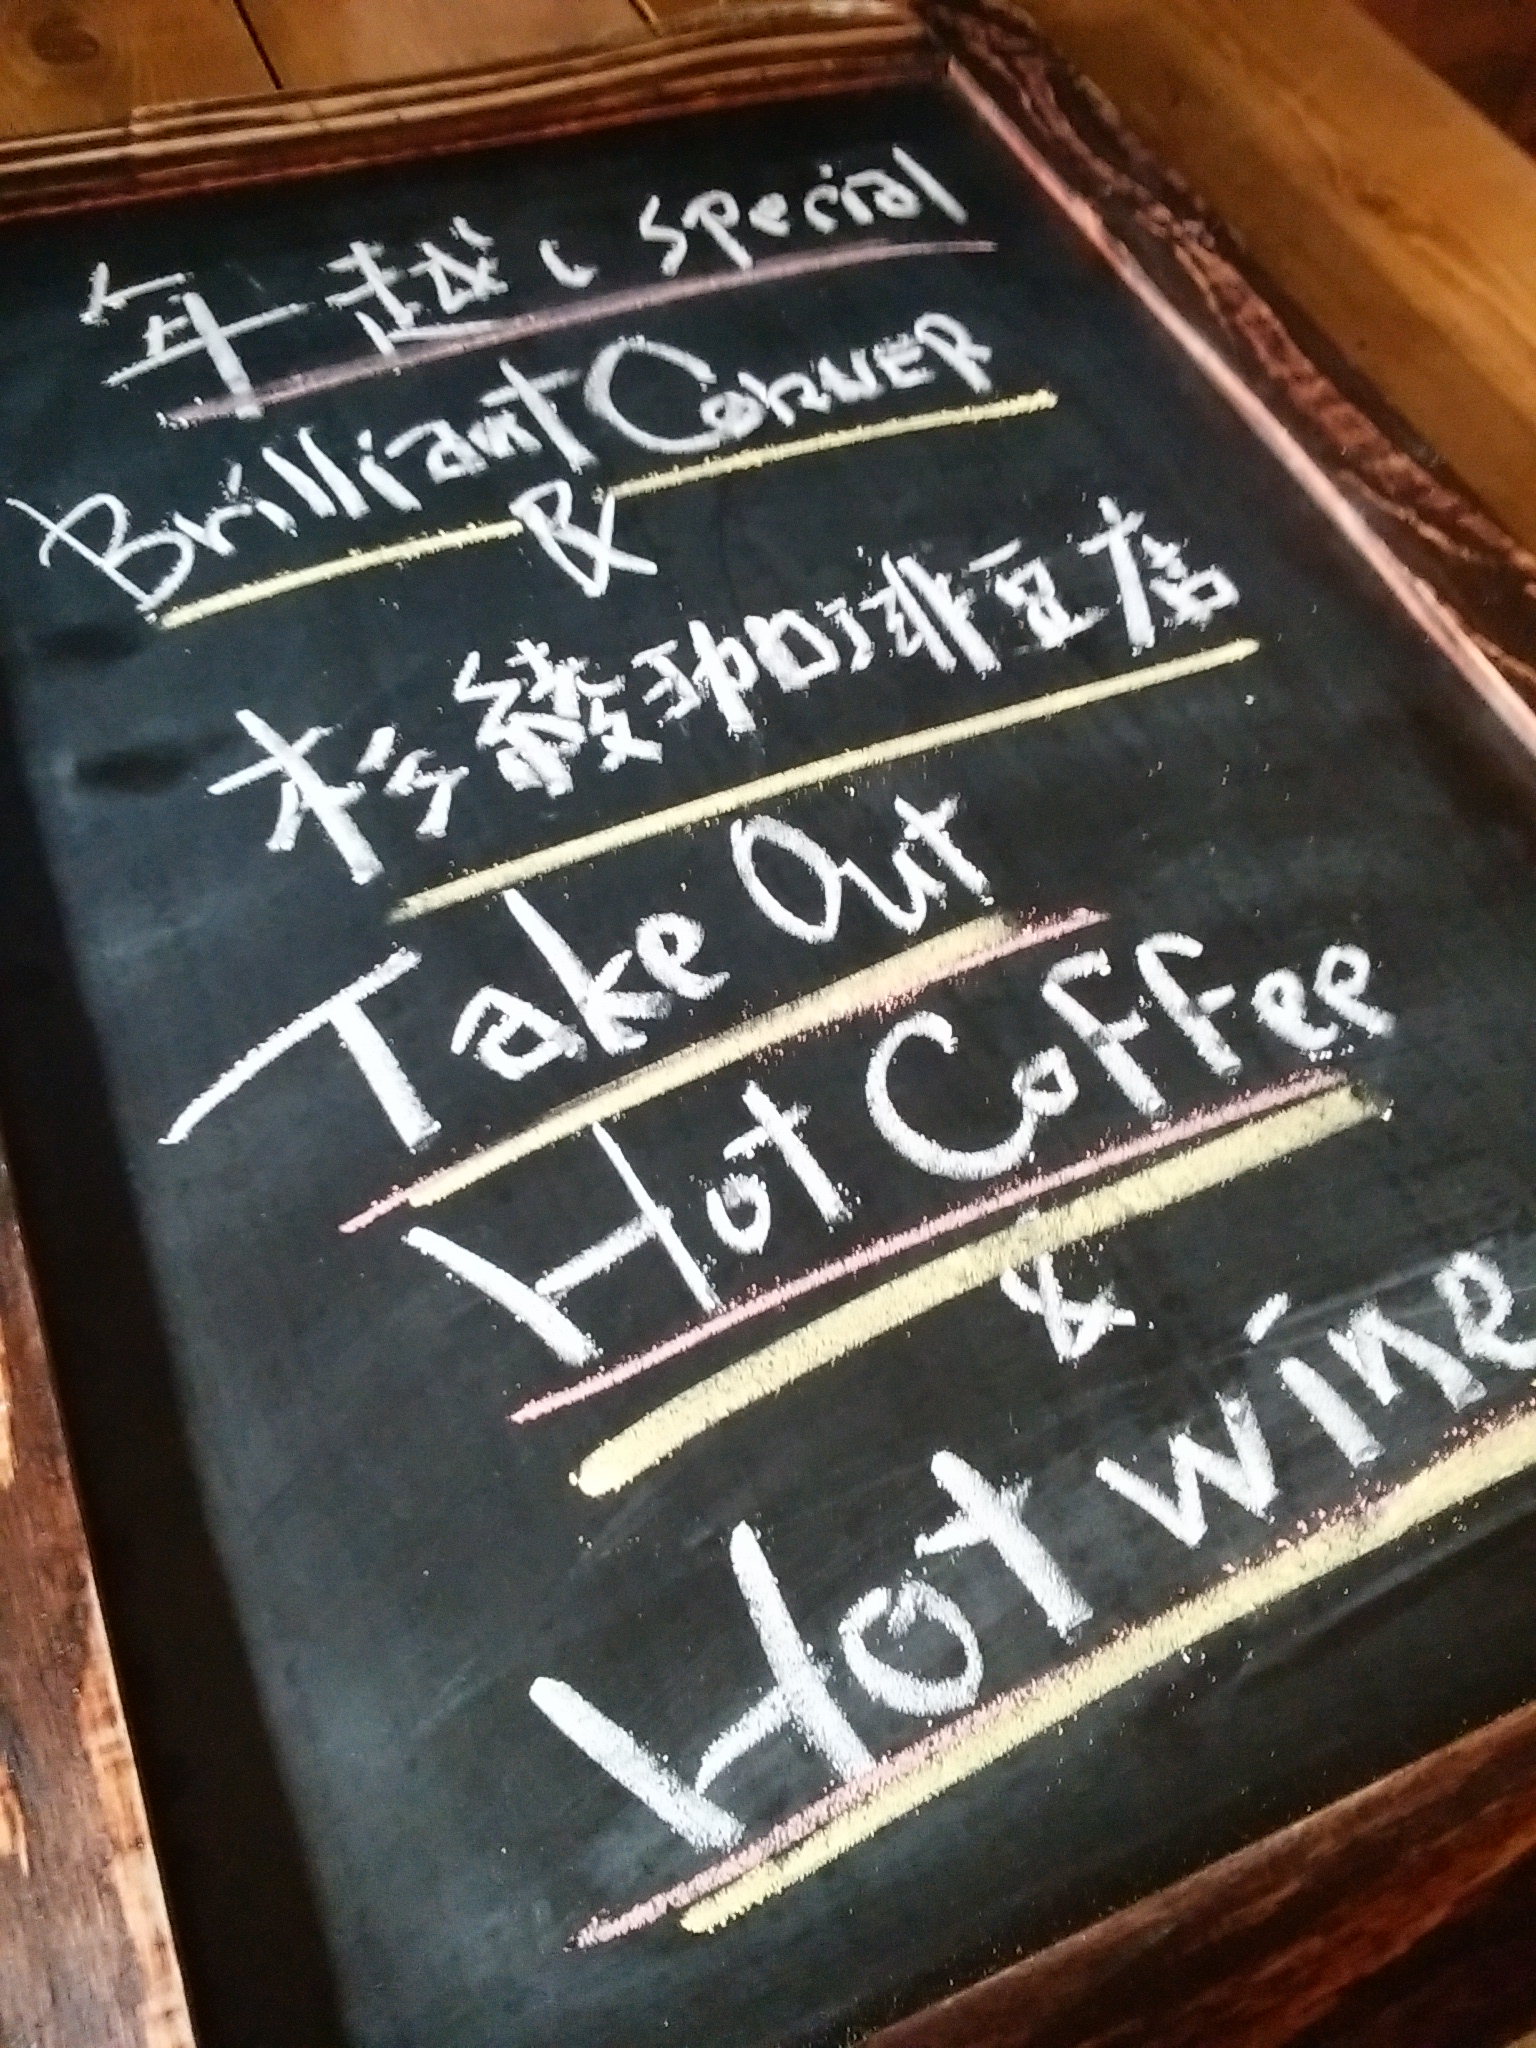 年越し special
Brilliant CorNER
&
松綾珈琲豆店
Take Out
Hot Coffee
&
Hot wine